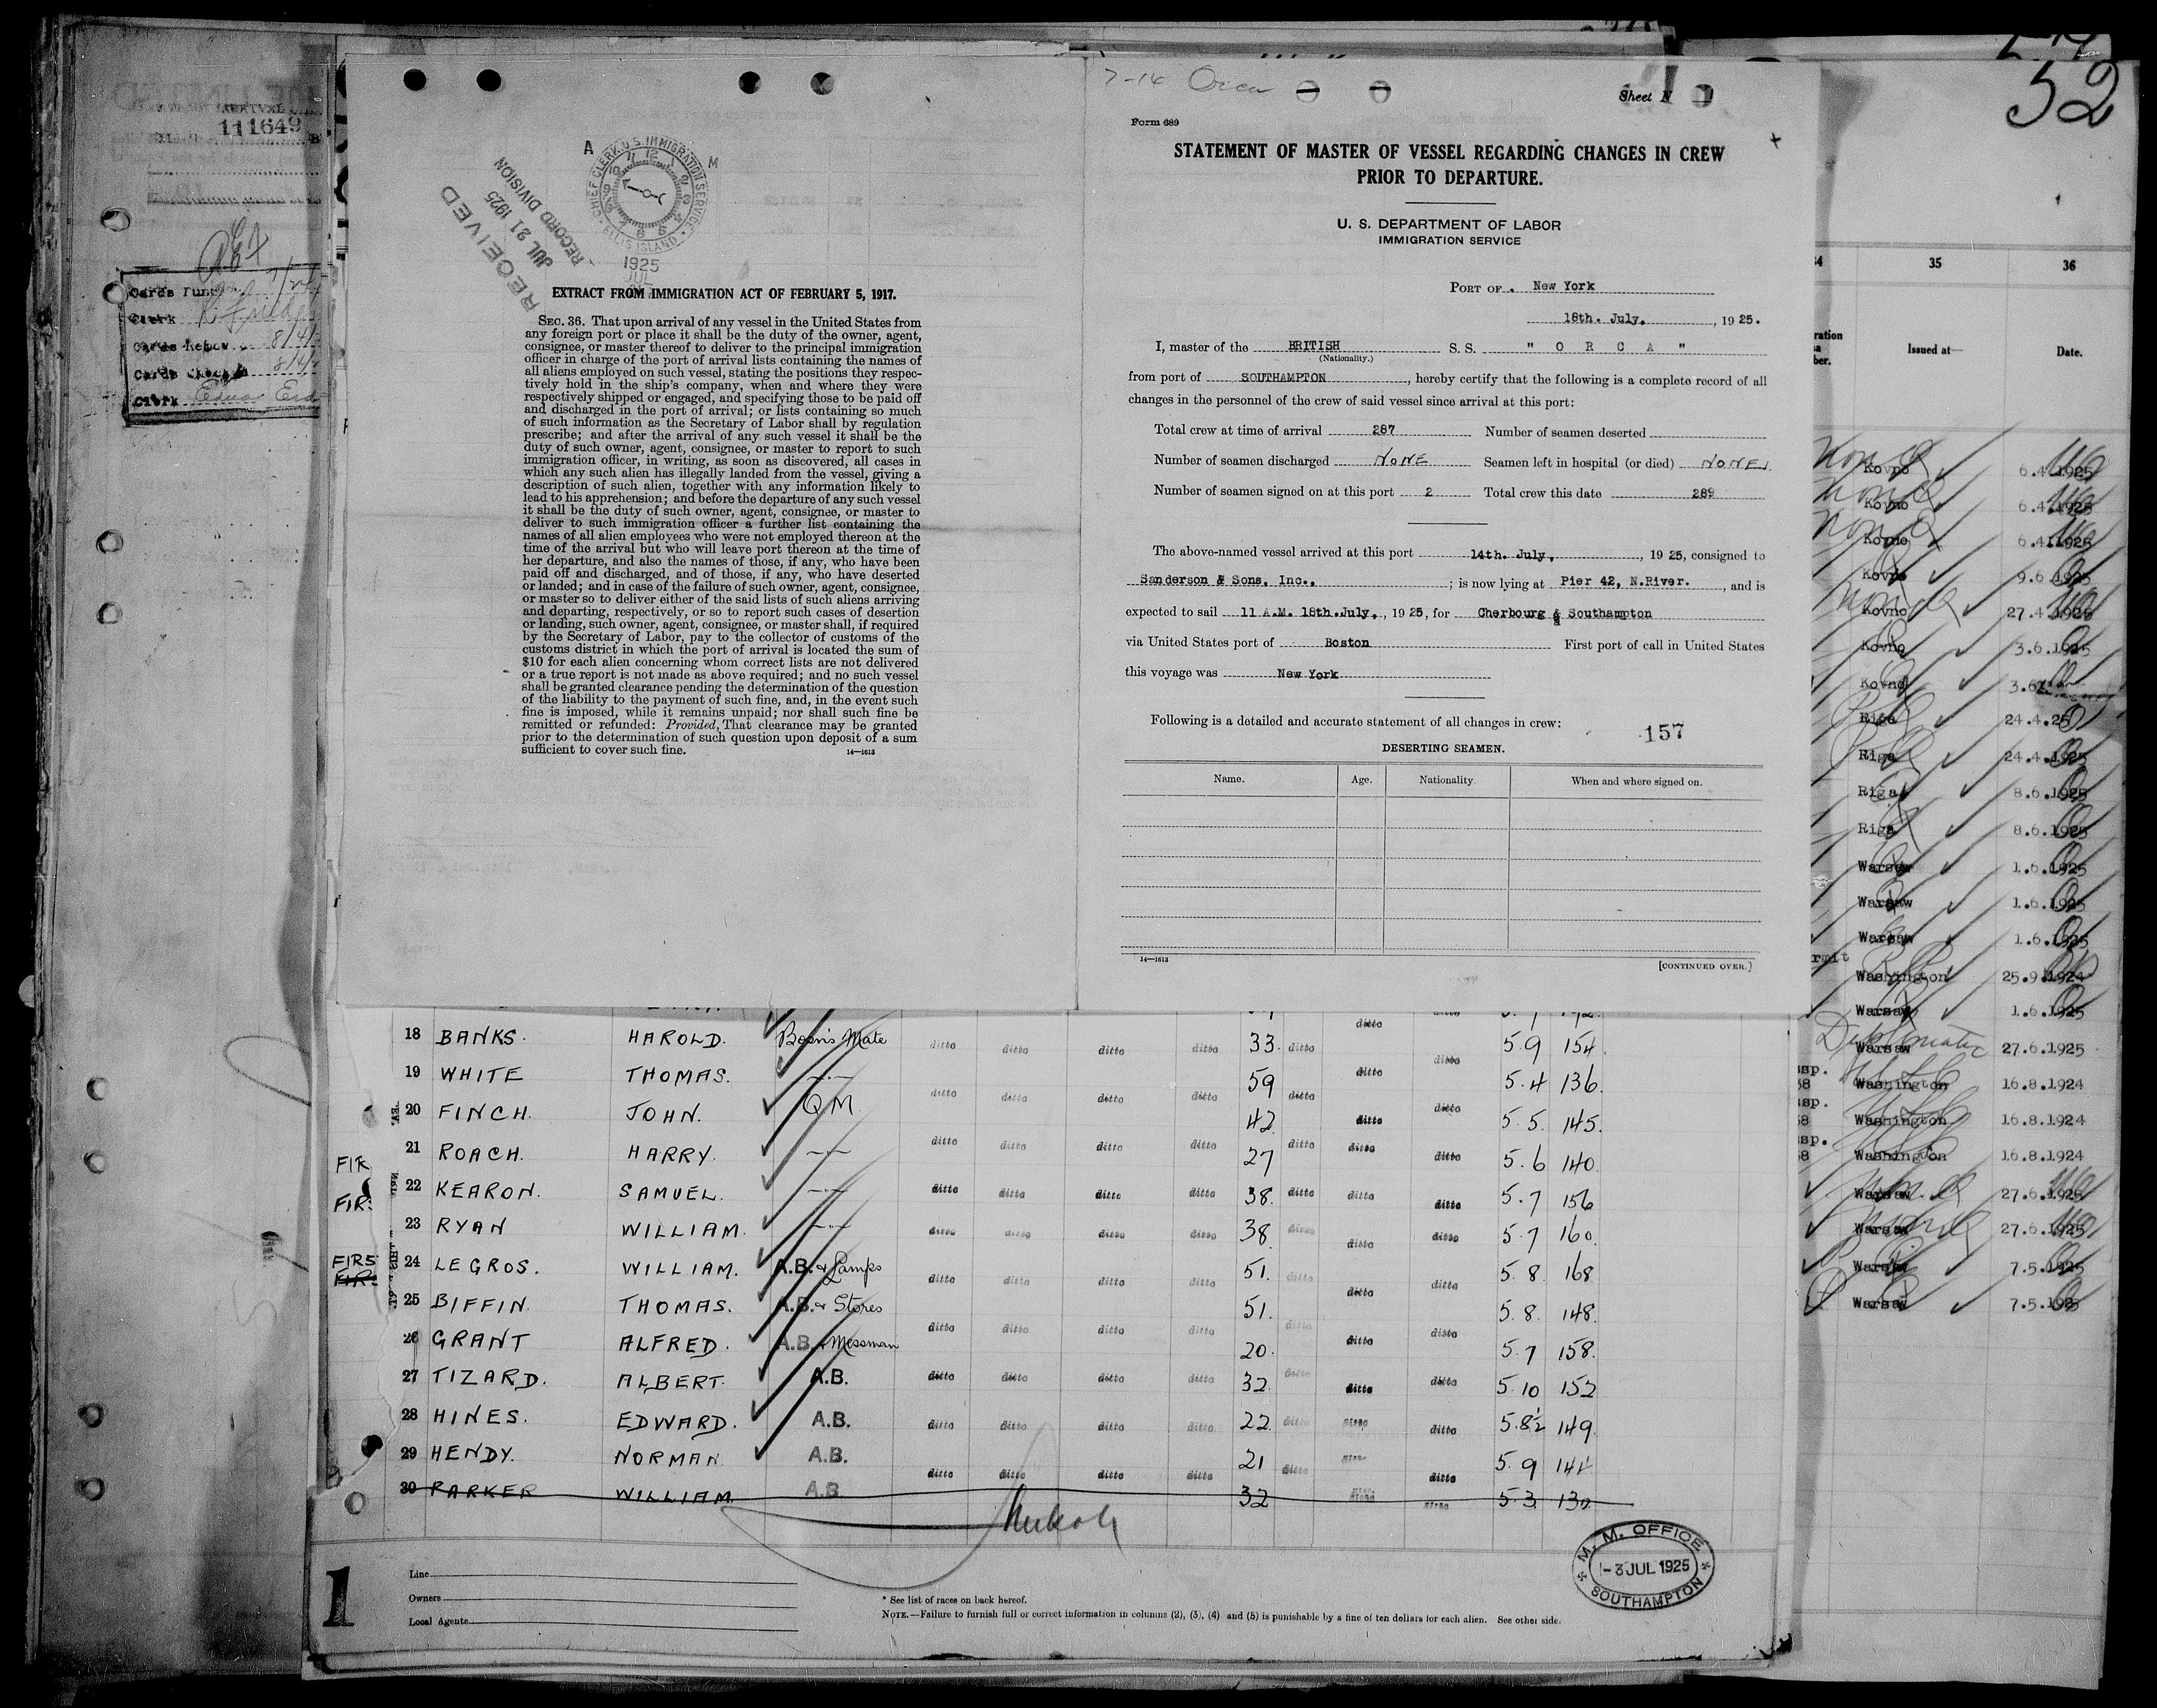 52
ARRIVAL
111649
Cards
Clerk
Cards
8/4/
Cards
Clerk Edna
A M
CHIEF CLERK, U.S. IMMIGRATION SERVICE
ELLIS ISLAND
1925
JUL
RECEIVED
JUL 21 1925
RECORD DIVISION
EXTRACT FROM IMMIGRATION ACT OF FEBRUARY 5, 1917.
SEC. 36. That upon arrival of any vessel in the United States from
any foreign port or place it shall be the duty of the owner, agent,
consignee, or master thereof to deliver to the principal immigration
officer in charge of the port of arrival lists containing the names of
all aliens employed on such vessel, stating the positions they respec-
tively hold in the ship's company, when and where they were
respectively shipped or engaged, and specifying those to be paid off
and discharged in the port of arrival; or lists containing so much
of such information as the Secretary of Labor shall by regulation
prescribe; and after the arrival of any such vessel it shall be the
duty of such owner, agent, consignee, or master to report to such
immigration officer, in writing, as soon as discovered, all cases in
which any such alien has illegally landed from the vessel, giving a
description of such alien, together with any information likely to
lead to his apprehension; and before the departure of any such vessel
it shall be the duty of such owner, agent, consignee, or master to
deliver to such immigration officer a further list containing the
names of all alien employees who were not employed thereon at the
time of the arrival but who will leave port thereon at the time of
her departure, and also the names of those, if any, who have been
paid off and discharged, and of those, if any, who have deserted
or landed; and in case of the failure of such owner, agent, consignee,
or master so to deliver either of the said lists of such aliens arriving
and departing, respectively, or so to report such cases of desertion
or landing, such owner, agent, consignee, or master shall, if required
by the Secretary of Labor, pay to the collector of customs of the
customs district in which the port of arrival is located the sum of
$10 for each alien concerning whom correct lists are not delivered
or a true report is not made as above required; and no such vessel
shall be granted clearance pending the determination of the question
of the liability to the payment of such fine, and, in the event such
fine is imposed, while it remains unpaid; nor shall such fine be
remitted or refunded: Provided, That clearance may be granted
prior to the determination of such question upon deposit of a sum
sufficient to cover such fine. 14—1613
7-14 Orca Sheet N
Form 689
STATEMENT OF MASTER OF VESSEL REGARDING CHANGES IN CREW
PRIOR TO DEPARTURE.
U. S. DEPARTMENT OF LABOR
IMMIGRATION SERVICE
PORT OF New York
18th. July, , 1925.
I, master of the BRITISH S.S. " O R C A "
(Nationality.)
from port of SOUTHAMPTON, hereby certify that the following is a complete record of all
changes in the personnel of the crew of said vessel since arrival at this port:
Total crew at time of arrival 287 Number of seamen deserted
Number of seamen discharged NONE Seamen left in hospital (or died) NONE
Number of seamen signed on at this port 2 Total crew this date 289
The above-named vessel arrived at this port 14th. July, , 1925, consigned to
Sanderson & Sons, Inc., ; is now lying at Pier 42, N.River. , and is
expected to sail 11 A.M. 18th.July, , 1925, for Cherbourg & Southampton
via United States port of Boston First port of call in United States
this voyage was New York
Following is a detailed and accurate statement of all changes in crew:
157
DESERTING SEAMEN.
Name. Age. Nationality. When and where signed on.
14—1613 [CONTINUED OVER.]
18 BANKS. HAROLD. Bosn's Mate ditto ditto ditto ditto 33. ditto ditto ditto 5.9 154.
19 WHITE THOMAS. —.— ditto ditto ditto ditto 59 ditto ditto ditto 5.4 136.
20 FINCH. JOHN. QM. 42 ditto 5.5. 145.
21 ROACH. HARRY. —.— ditto ditto ditto ditto 27 ditto ditto ditto 5.6 140.
22 KEARON. SAMUEL. —.— ditto ditto ditto ditto 38. ditto ditto ditto 5.7 156
23 RYAN WILLIAM. —.— ditto ditto ditto ditto 38. ditto ditto ditto 5.7 160.
24 LE GROS. WILLIAM. A.B. & Lamps ditto ditto ditto ditto 51. ditto ditto ditto 5.8. 168
25 BIFFIN. THOMAS. A.B. & Stores 51. 5.8. 148.
26 GRANT ALFRED. A.B. & Messman ditto ditto ditto ditto 20. ditto ditto ditto 5.7 158.
27 TIZARD. ALBERT. A.B. ditto ditto ditto ditto 32 ditto ditto ditto 5.10 152
28 HINES. EDWARD. A.B. ditto ditto ditto ditto 22 ditto ditto ditto 5.8½ 149.
29 HENDY. NORMAN A.B. ditto ditto ditto ditto 21 ditto ditto 5.9
30 PARKER WILLIAM. A.B. 32 5.3. 130.
FIR
FIR:
FIRS
FIR:
1
Line
Owners
Local Agents
* See list of races on back hereof.
NOTE.—Failure to furnish full or correct information in columns (2), (3), (4) and (5) is punishable by a fine of ten dollars for each alien. See other side.
M. M. OFFICE
-3 JUL 1925
SOUTHAMPTON
35 36
Issued at— Date.
Kovno 6.4.1925
Kovno 6.4.1925
Kovno 6.4.1925
Kovno 9.6.1925
Kovno 27.4.1925
Kovno 3.6.1925
Kovno 3.6.
Riga 24.4.25
Riga 24.4.1925
Riga 8.6.1925
Riga 8.6.1925
Warsaw 1.6.1925
Warsaw 1.6.1925
Warsaw 1.6.1925
Washington 25.9.1924
Warsaw 1.6.1925
Diplomatic
Warsaw 27.6.1925
Washington 16.8.1924
Washington 16.8.1924
Washington 16.8.1924
Warsaw 27.6.1925
Warsaw 27.6.1925
Warsaw 7.5.1925
Warsaw 7.5.1925